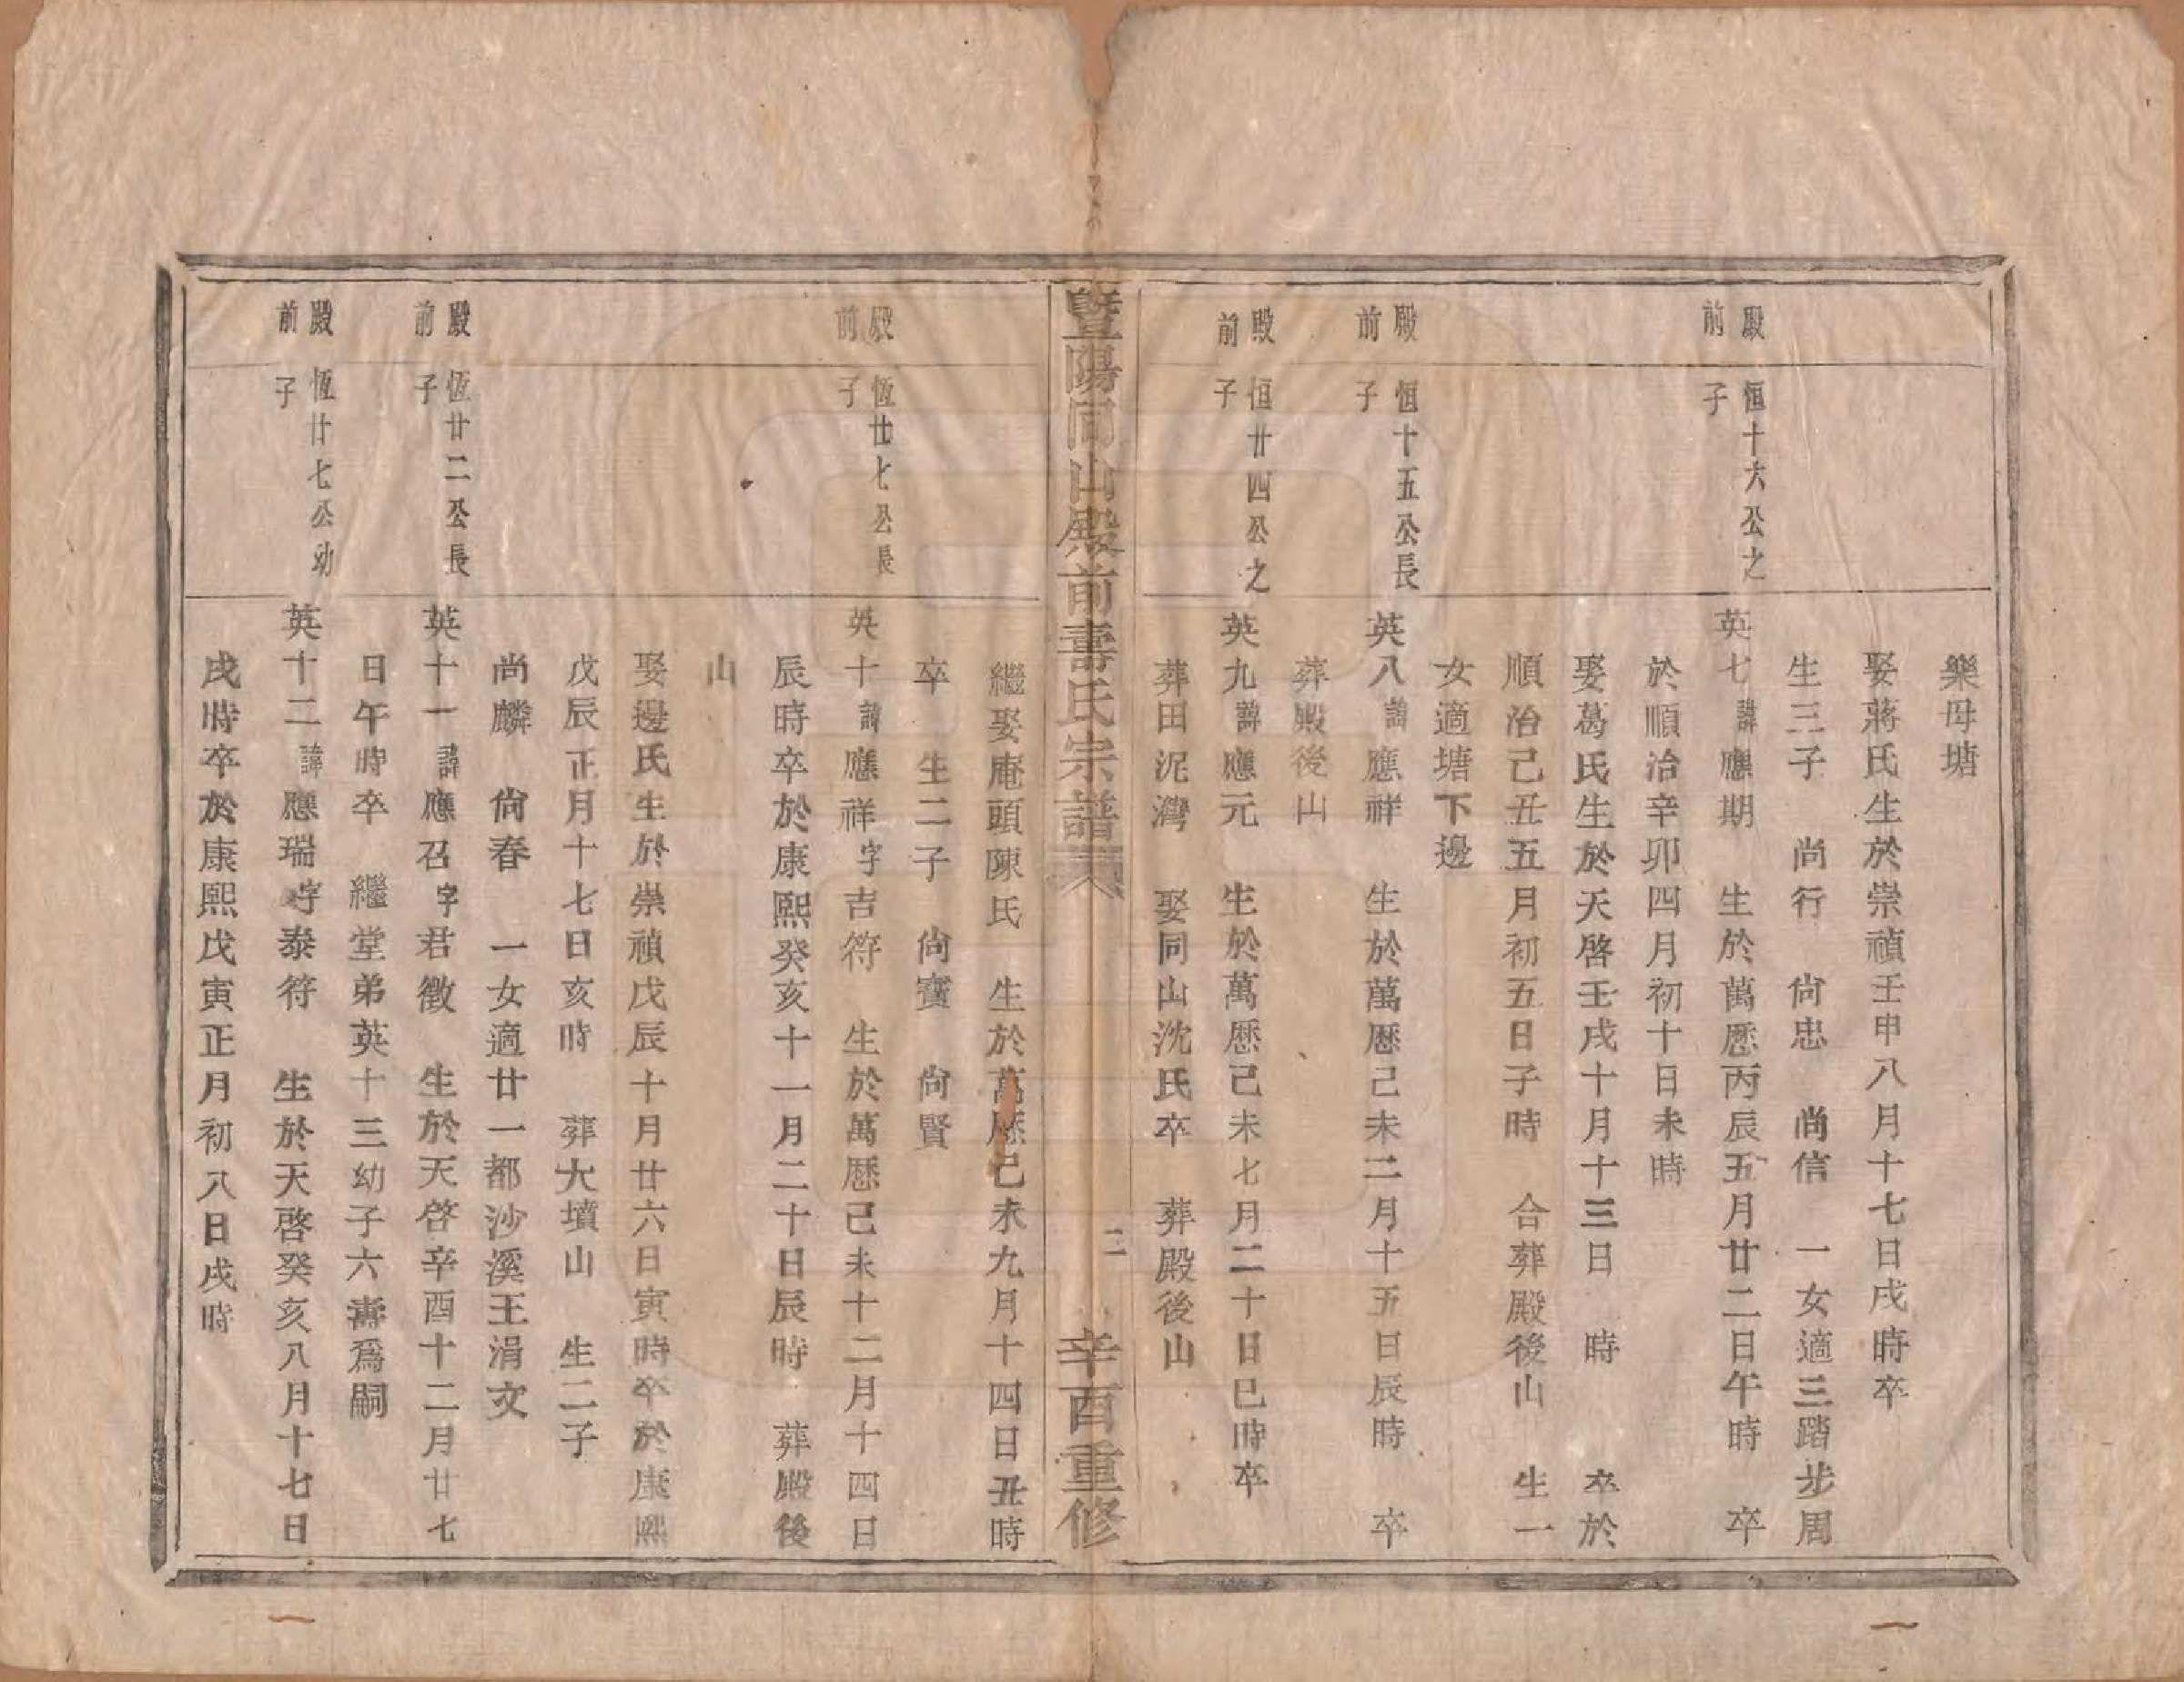 樂母塘
娶蔣氏生於崇禎壬申八月十七日戌時卒
生三子　尚行　尚忠　尚信　一女適三踏步周
殿前
恒十六公之子
英七諱應期　生於萬歷丙辰五月廿二日午時　卒
於順治辛卯四月初十日未時
娶葛氏生於天啓壬戌十月十三日　時　卒於
順治己丑五月初五日子時　合葬殿後山　生一
女適塘下邊
殿前
恒十五公長子
英八諱應祥　生於萬歷己未二月十五日辰時　卒
葬殿後山
殿前
恒廿四公之子
英九諱應元　生於萬歷己未七月二十日巳時卒
葬田泥灣　娶同山沈氏卒　葬殿後山
暨陽同山殿前壽氏宗譜
二
辛酉重修
繼娶庵頭陳氏　生於萬歷己未九月十四日丑時
卒　生二子　尚寶　尚賢
殿前
恆廿七公長子
英十諱應祥字吉符　生於萬歷己未十二月十四日
辰時卒於康熙癸亥十一月二十日辰時　葬殿後
山
娶邊氏生於崇禎戊辰十月廿六日寅時卒於康熙
戊辰正月十七日亥時　葬大墳山　生二子
尚麟　尚春　一女適廿一都沙溪王涓文
殿前
恆廿二公長子
英十一諱應召字君徵　生於天啓辛酉十二月廿七
日午時卒　繼堂弟英十三幼子六壽爲嗣
殿前
恆廿七公幼子
英十二諱應瑞字泰符　生於天啓癸亥八月十七日
戌時卒於康熙戊寅正月初八日戌時